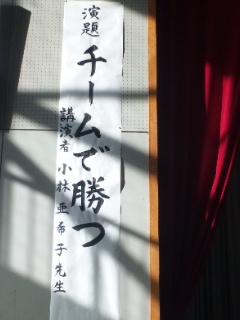 演題 チームで勝つ
講演者 小林 亜希子先生